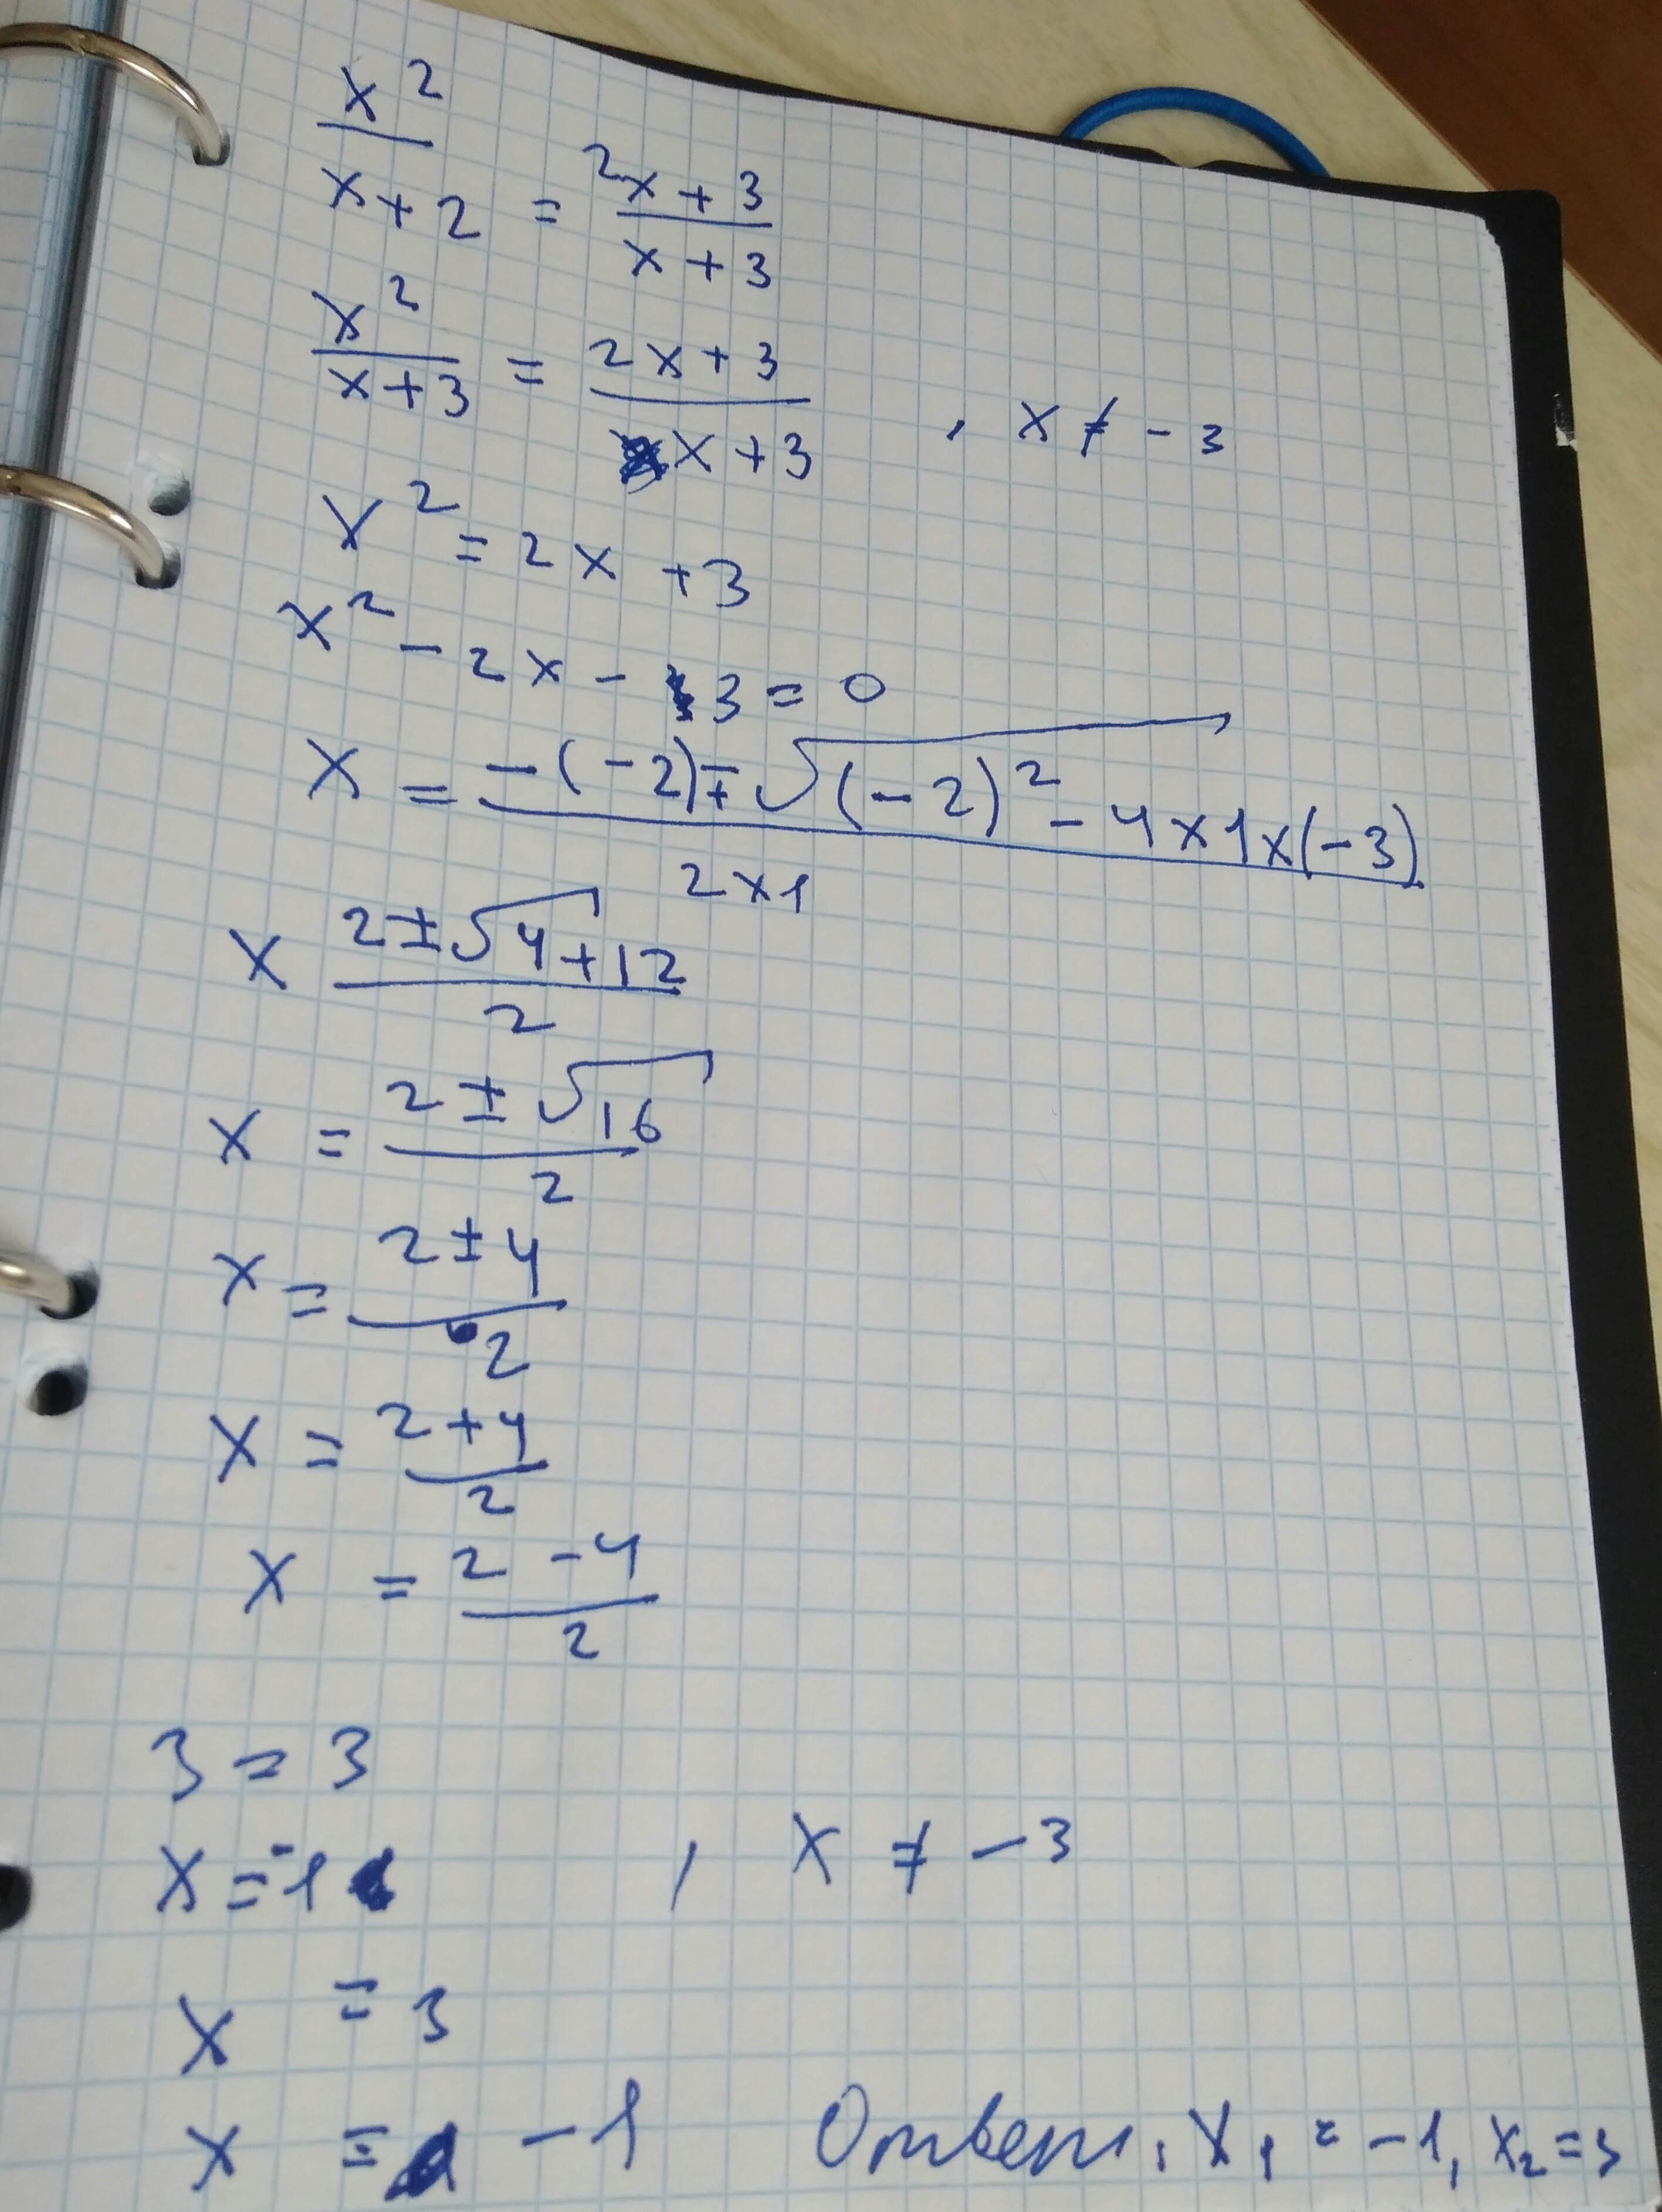 x²
x+2 = 2x+3
x+3
x²
x+3 = 2x+3
x+3 , x ≠ -3
x² = 2x +3
x² - 2x - 3 = 0
x = -(-2)∓√(-2)² - 4x1x(-3)
2x1
x 2±√4+12
2
x = 2±√16
2
x = 2±4
2
x = 2+4
2
x = 2-4
2
3 = 3
x = -1 , x ≠ -3
x = 3
x = -1 Ответ: x₁ = -1, x₂ = 3